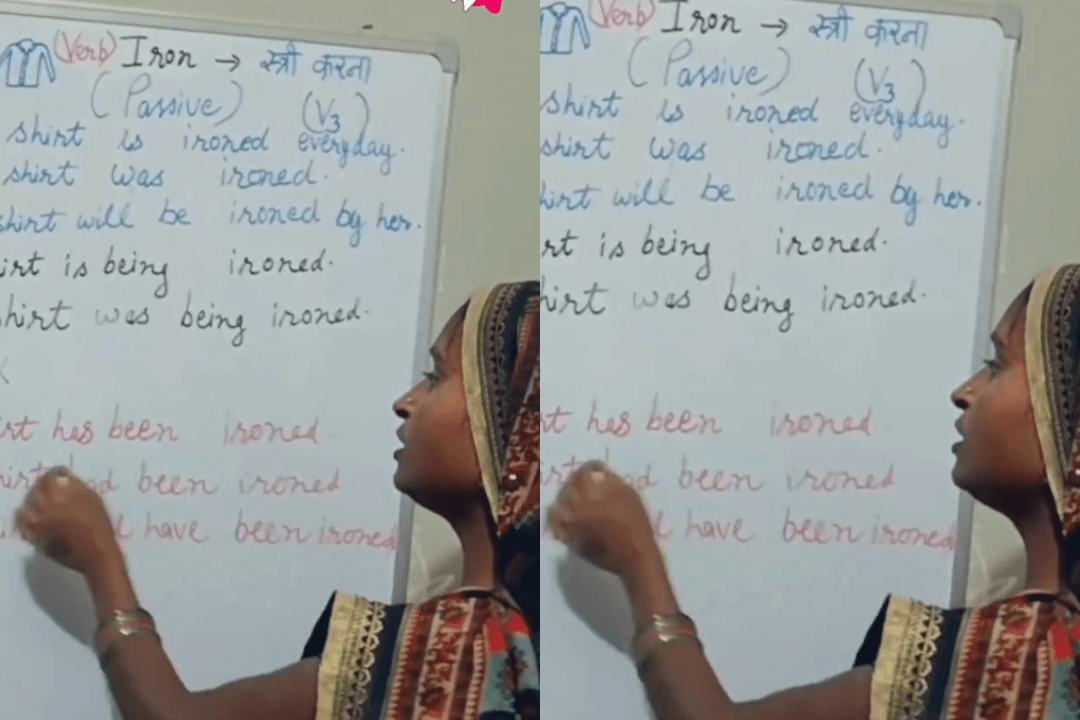 (Verb) Iron → स्त्री करना
(Passive) (V3)
shirt is ironed everyday.
shirt was ironed.
shirt will be ironed by her.
irt is being ironed.
hirt was being ironed.
irt has been ironed
hirt been ironed
have been ironed
(Verb) Iron → स्त्री करना
(Passive) (V3)
shirt is ironed everyday.
shirt was ironed.
hirt will be ironed by her.
rt is being ironed.
hirt was being ironed.
rt has been ironed
irt been ironed
have been ironed